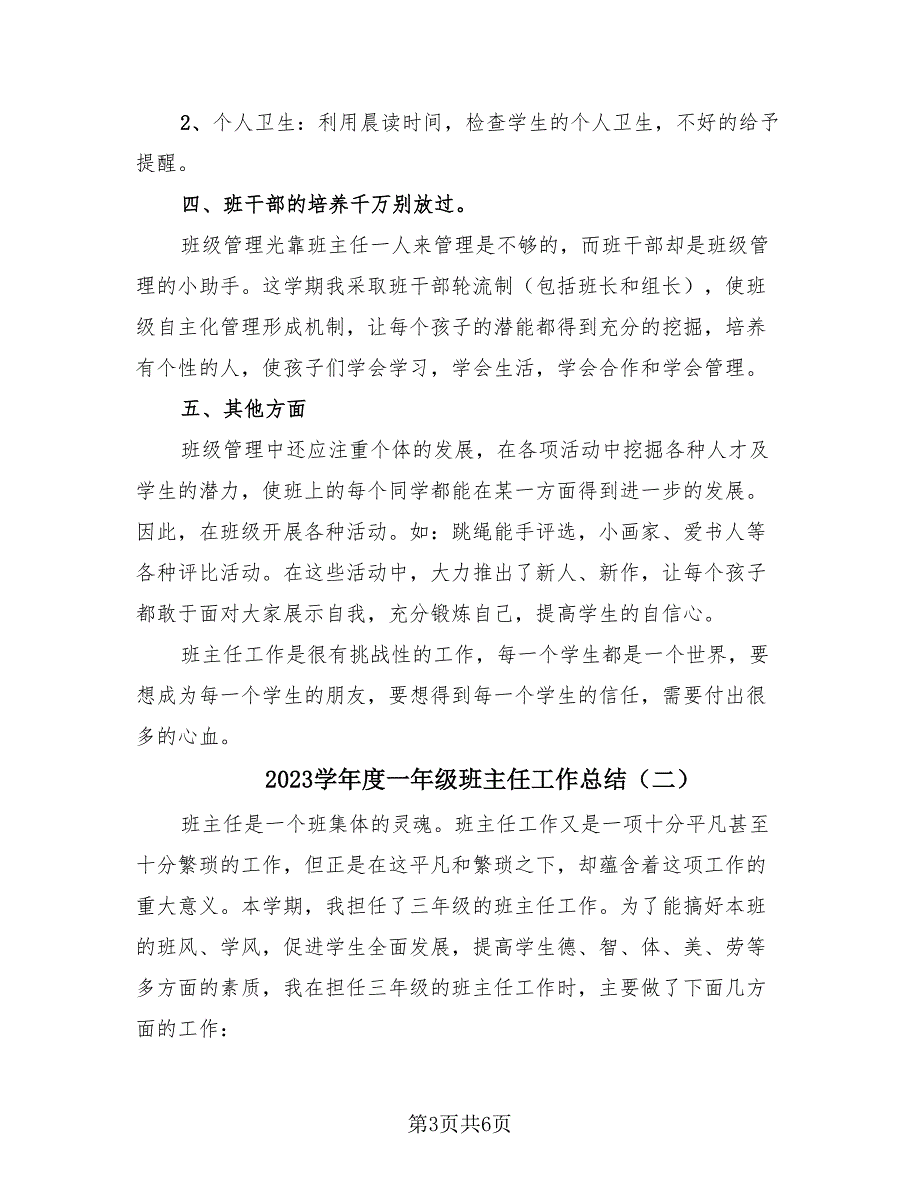 2、个人卫生：利用晨读时间，检查学生的个人卫生，不好的给予
提醒。
四、班干部的培养千万别放过。
班级管理光靠班主任一人来管理是不够的，而班干部却是班级管
理的小助手。这学期我采取班干部轮流制（包括班长和组长），使班
级自主化管理形成机制，让每个孩子的潜能都得到充分的挖掘，培养
有个性的人，使孩子们学会学习，学会生活，学会合作和学会管理。
五、其他方面
班级管理中还应注重个体的发展，在各项活动中挖掘各种人才及
学生的潜力，使班上的每个同学都能在某一方面得到进一步的发展。
因此，在班级开展各种活动。如：跳绳能手评选，小画家、爱书人等
各种评比活动。在这些活动中，大力推出了新人、新作，让每个孩子
都敢于面对大家展示自我，充分锻炼自己，提高学生的自信心。
班主任工作是很有挑战性的工作，每一个学生都是一个世界，要
想成为每一个学生的朋友，要想得到每一个学生的信任，需要付出很
多的心血。
2023学年度一年级班主任工作总结（二）
班主任是一个班集体的灵魂。班主任工作又是一项十分平凡甚至
十分繁琐的工作，但正是在这平凡和繁琐之下，却蕴含着这项工作的
重大意义。本学期，我担任了三年级的班主任工作。为了能搞好本班
的班风、学风，促进学生全面发展，提高学生德、智、体、美、劳等
多方面的素质，我在担任三年级的班主任工作时，主要做了下面几方
面的工作：
第3页共6页